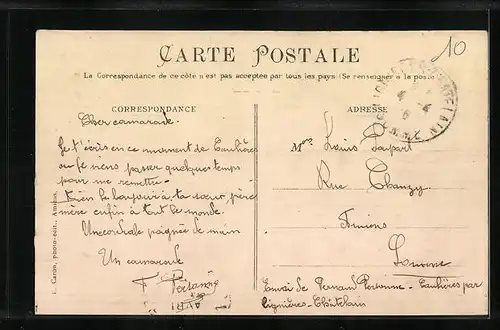 10
CARTE POSTALE
La Correspondance de ce côté n'est pas acceptée par tous les pays (Se renseigner à la poste)
CORRESPONDANCE
Cher camarade.
Je t'écris en ce moment de
où je viens passer quelques temps
pour me remettre.
le bonjour à ta sœur, père
mère enfin à tout le monde.
Une cordiale poignée de main
Un camarade
F.
ADRESSE
Louis
Rue Chanzy
Amiens
Somme
Envoi de Fernand par
Lignières-Châtelain
photo-édit., Amiens.